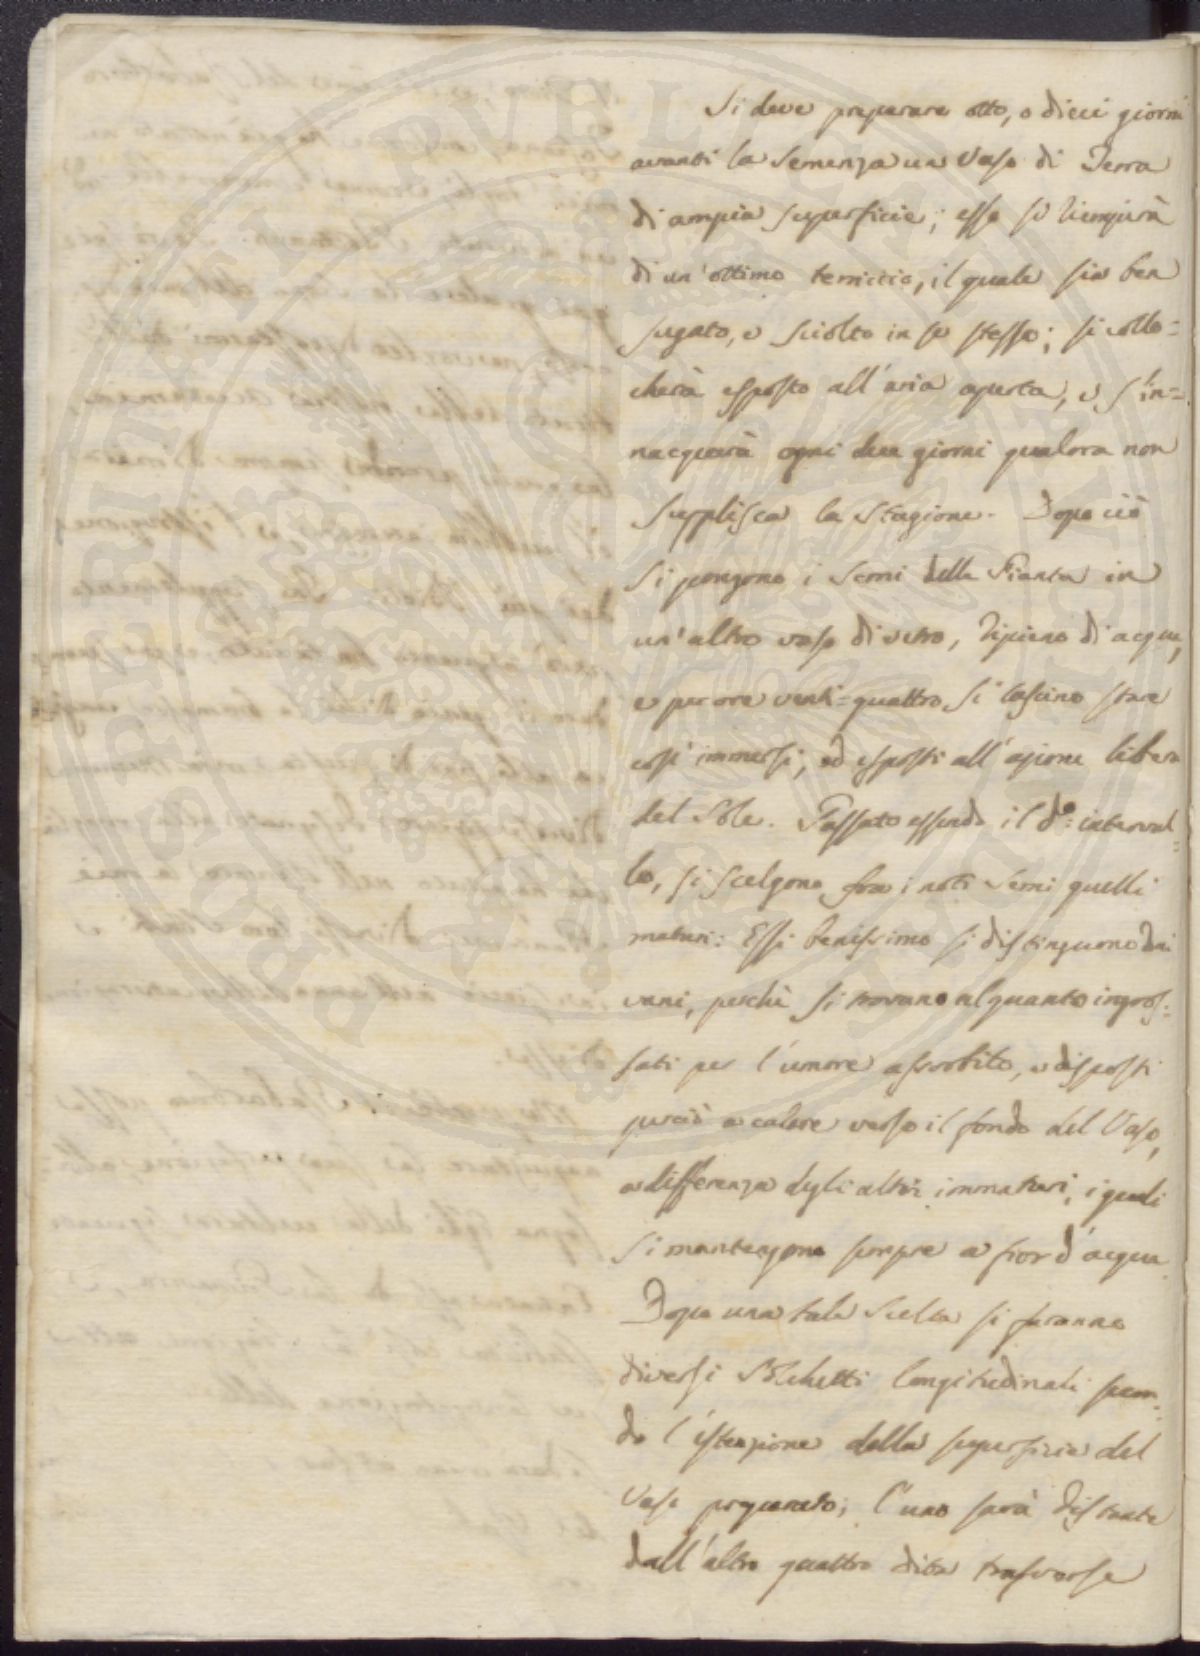 Si deve preparare otto, o dieci giorni
avanti la Semenza un Vaso di Terra
di ampia superficie; esso si riempirà
di un' ottimo terriccio, il quale sia ben
sugato, e sciolto in se stesso; si collo=
cherà esposto all' aria aperta, e s' in=
nacquerà ogni due giorni qualora non
supplisca la Stagione. Dopo ciò
Si pongono i Semi della Pianta in
un' altro vaso di vetro, ripieno di acqua,
e per ore venti=quattro si lascino stare
così immersi, ed esposti all' azione libera
del Sole. Passato essendo il do: interval=
lo, si scelgono fra i noti Semi quelli
maturi: Essi benissimo si distinguono dai
vani, perchè si trovano alquanto ingros=
sati per l' umore assorbito, e disposti
perciò a calare verso il fondo del Vaso,
a differenza degli altri immaturi, i quali
si mantengono sempre a fior d' acqua.
Dopo una tale Scelta si faranno
diversi Solchetti longitudinali secon=
do l' estenzione della superficie del
Vaso preparato; l' uno sarà distante
dall' altro quattro dita trasverse
POSPERITATI PVBLICAE